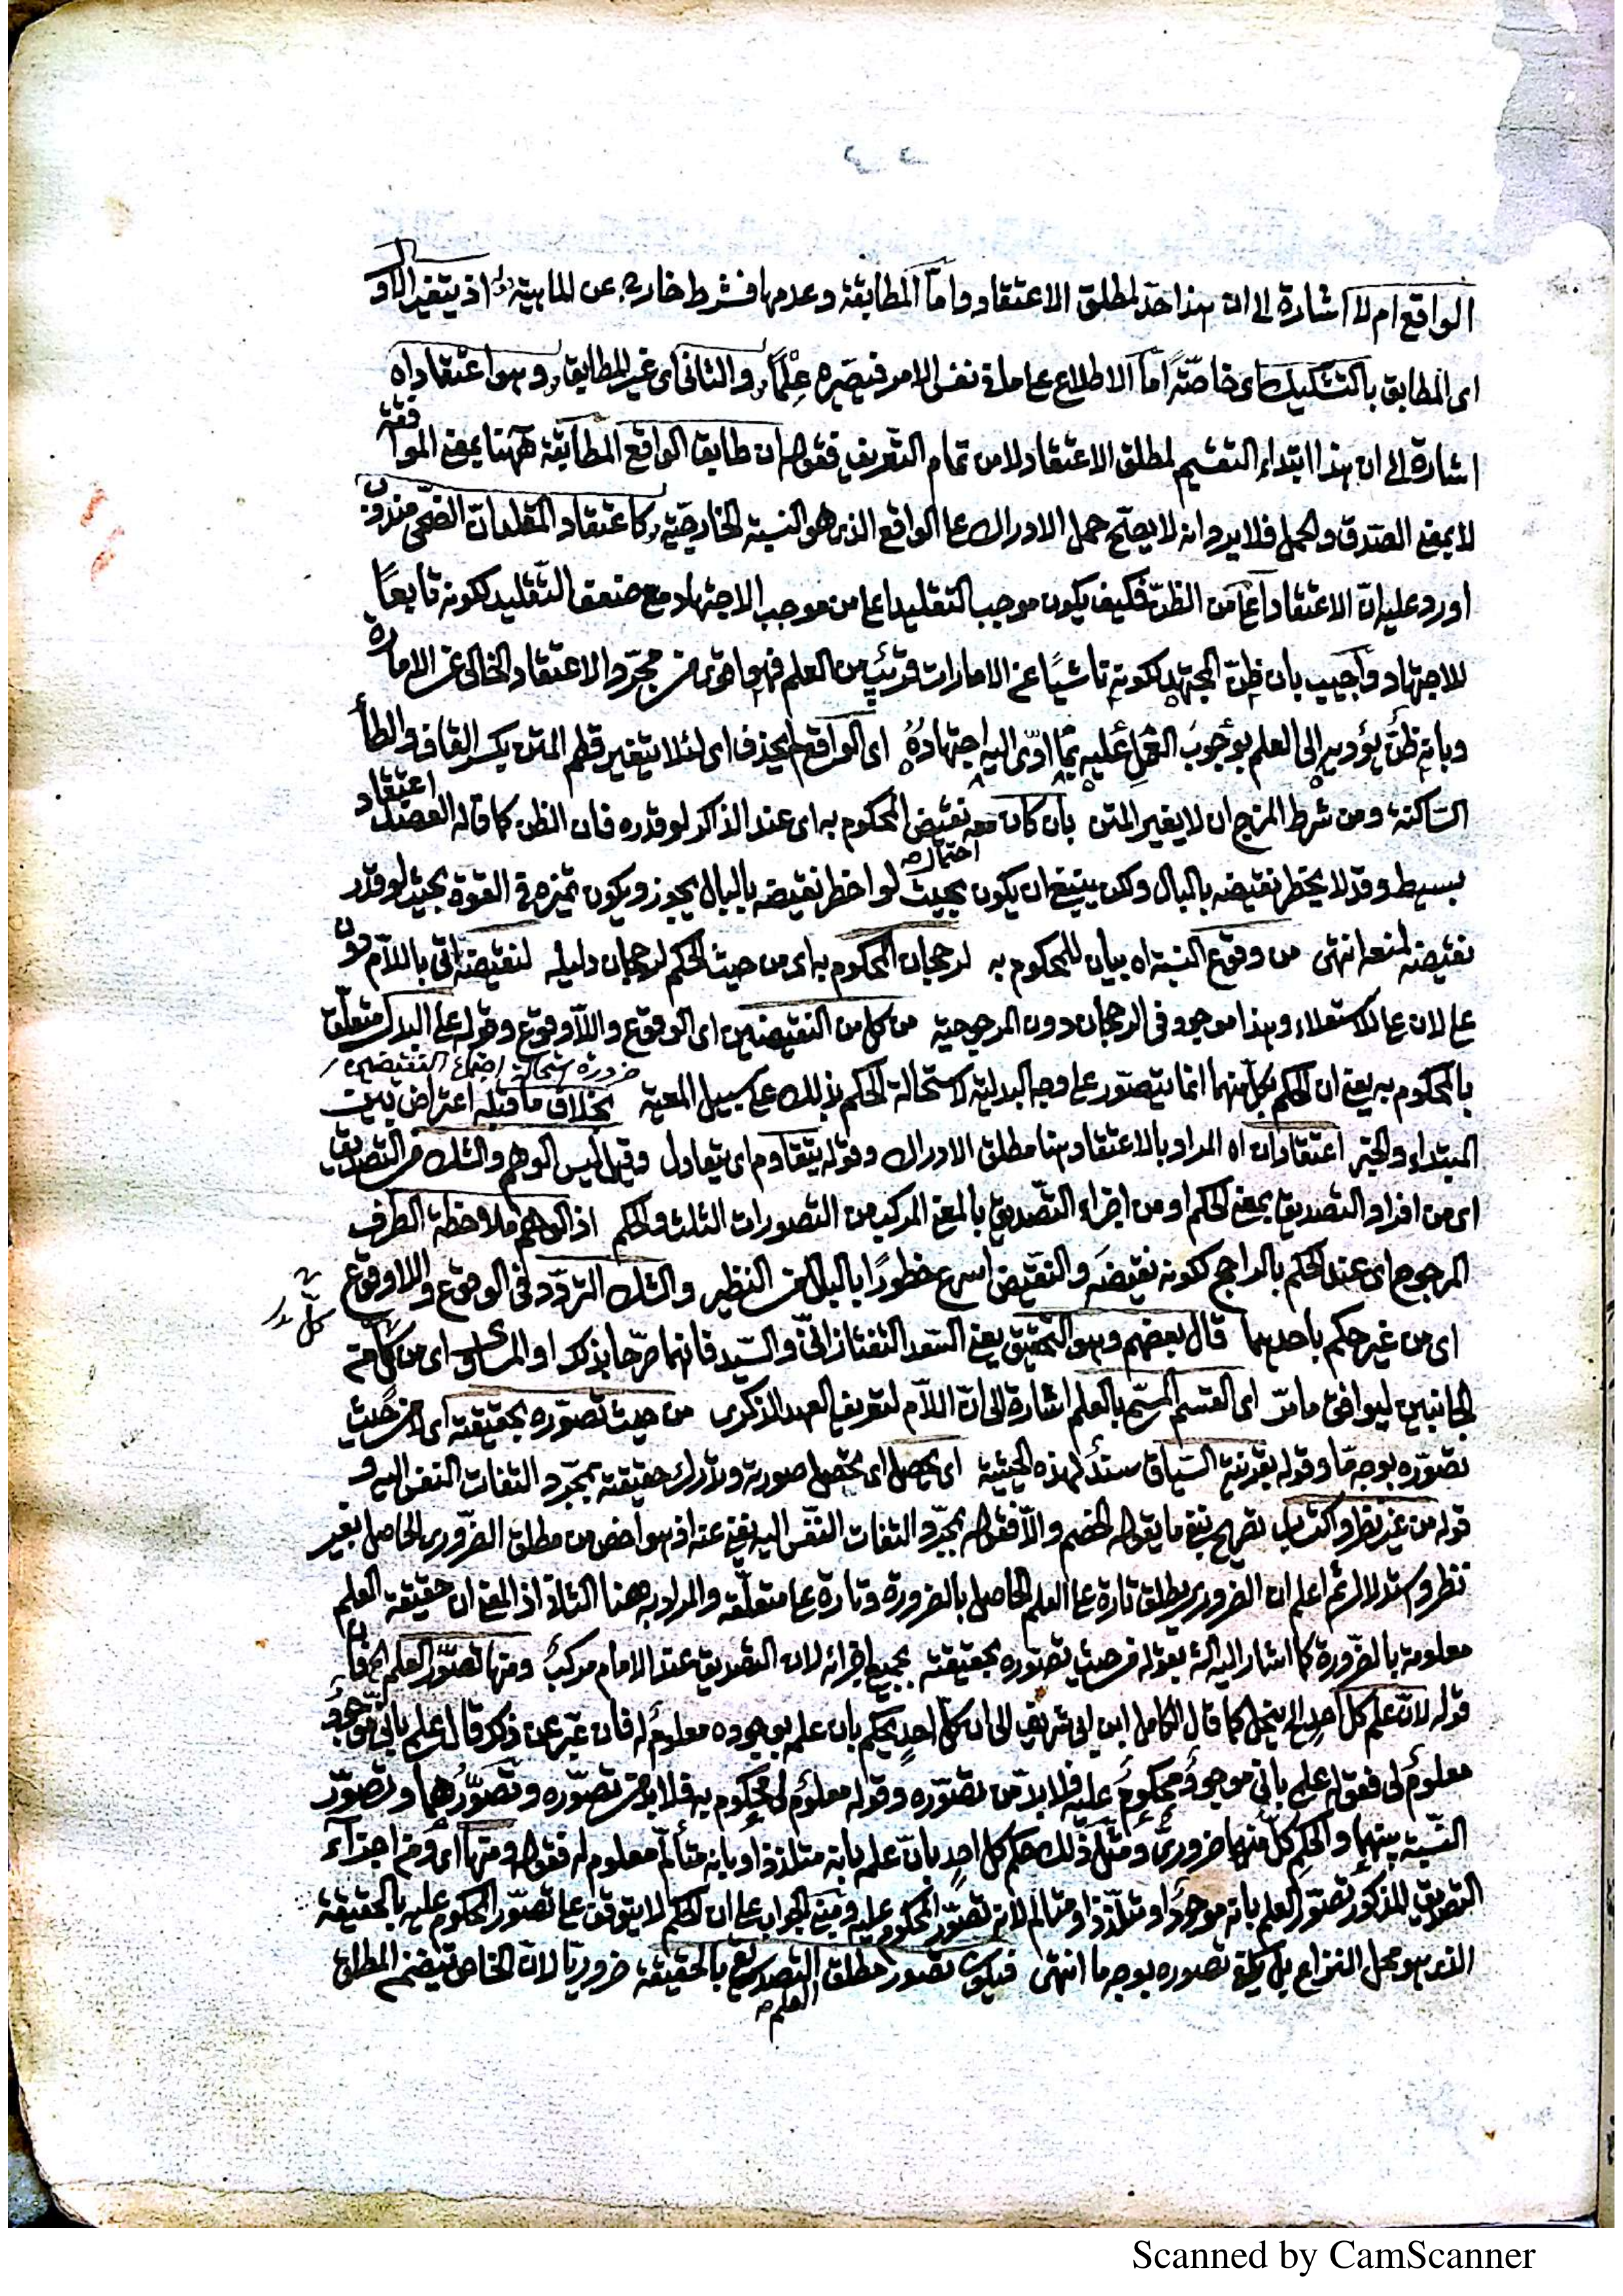 الواقع ام لا اشارة الى ان هذا حد لمطلق الاعتقاد واما المطابقة وعدمها فشرط خارج عن الماهية اذ يتغير الاول
اى المطابق بالتشكيك اى خاصّةً اما الاطلاع على ما فى نفس الامر فيصيره عِلْمًا والثانى اى غير المطابق وهو اعتقاد اه
اشارة الى ان هذا ابتداء التقسيم لمطلق الاعتقاد لا من تمام التعريف فقوله ان طابق الواقع المطابقة ههنا بمعنى الموافقة
لا بمعنى الصدق والحمل فلا يرد انه لا يصح حمل الادراك على الواقع الذى هو النسبة الخارجية كاعتقاد المقلد ان الضحى مندوب
اورد عليه ان الاعتقاد اعم من الظن فكيف يكون موجب التقليد اعلى من موجب الاجتهاد مع ضعف التقليد لكونه تابعًا
للاجتهاد واجيب بان ظن المجتهد لكونه ناشيًا عن الامارات قريب من العلم فهو اقوى من مجرد الاعتقاد الخالى عن الامارة
وبانه ظنٌ يؤديه الى العلم بوجوب العمل عليه بما ادّى اليه اجتهادهُ اى الواقع بحذف اى لئلا يتغير قلم المتن بكسر القاف والطأ
الساكنة ومن شرط المزج ان لا يغير المتن بان كان معه نقيض المحكوم به اى عند الذاكر لو قدره فان الظن كما قاله العضد اعتقاد
احتماله
بسيط وقد لا يخطر نقيضه بالبال ولكن ينبغى ان يكون بحيث لو اخطر نقيضه بالبال يجوزه ويكون تميزه فى القوة بحيث لو قدر
نقيضه لمنعه انتهى من وقوع النسبة اه بيان للمحكوم به لرجحان المحكوم به اى من حيث الحكم لرجحان دليله لنقيضه اتى باللام دون
على لان على للاستعلاء وهذا موجود فى الرجحان دون المرجوحية من كل من النقيضين اى الوقوع واللاوقوع وقوله على البدل متعلق
ضرورة استحالة اجتماع النقيضين
بالمحكوم به يعنى ان الحكم بكل منهما انما يتصور على وجه البدلية لاستحالة الحكم بذلك على سبيل المعية بخلاف ما قبله اعتراض بين
المبتداء والخبر اعتقادان اه المراد بالاعتقاد هنا مطلق الادراك وقوله يتقاوم اى يتعادل وقيل ليس الوهم والشك من التصديق
اى من افراد التصديق بمعنى الحكم او من اجزاء التصديق بالمعنى المركب من التصورات الثلث والحكم اذ الوهم ملاحظة الطرف
المرجوح اى عند الحكم بالراجح لكونه نقيضه والنقيض اسرع خطورًا بالبال من النظير والشك التردد فى الوقوع واللاوقوع
اى من غير حكم باحدهما قال بعضهم وهو التحقيق يعنى السعد التفتازانىّ والسيد فانهما صرحا بذلك او المساوى اى من كل من
الجانبين ليوافق ما مرّ اى القسم المسمى بالعلم اشارة الى ان اللام لتعريف العهد الذكرى من حيث تصوره بحقيقته اى لا من حيث
تصوره بوجه مّا وقوله بقرينة السياق سند لهذه الحيثية اى يحصل اى تحصل صورته وتدرك حقيقته بمجرد التفات النفس اليه و
قوله من غير نظر واكتساب تصريح بنفى ما يقوله الخصم والّا فقوله بمجرد التفات النفس اليه يغنى عنه اذ هو اخص من مطلق الضرورى الحاصل بغير
نظر واستدلال ثم اعلم ان الضرورى يطلق تارة على العلم الحاصل بالضرورة وتارة على متعلقه والمراد به ههنا الثانى اذ المعنى ان حقيقة العلم
معلومة بالضرورة كما اشار اليه بقوله من حيث تصوره بحقيقته بجميع اجزائه لان التصديق عند الامام مركبٌ ومنها تصور العلم
قوله لان علم كل احدٍ الخ ينحل كما قال الكامل ابن ابى شريف الى ان كل احدٍ يحكم بان علمه بوجوده معلومٌ له فان عبّر عن ذكر قال علمى بانى موجودٌ
معلومٌ لى فقوله علمى بانى موجودٌ محكومٌ عليه فلا بد من تصوره وقوله معلومٌ لى محكوم به فلا بد من تصوره وتصورُهما وتصور
النسبة بينهما والحكم كلٌ منها ضرورىٌ ومثل ذلك حكم كل احدٍ بان علمه بانه متلذذ او بانه متألم معلوم له فقوله ومنها اى ومن اجزآء
التصديق المذكور تصور العلم بانه موجودٌ او متلذذ او متالم لانه تصور المحكوم عليه ومبنى الجواب على ان الحكم لا يتوقف على تصور المحكوم عليه بالحقيقة
الذى هو محل النزاع بل يكفى تصوره بوجه ما انتهى فيكون تصور مطلق التصديق بالحقيقة ضروريًا لان الخاص يتضمن المطلق
العلم
Scanned by CamScanner